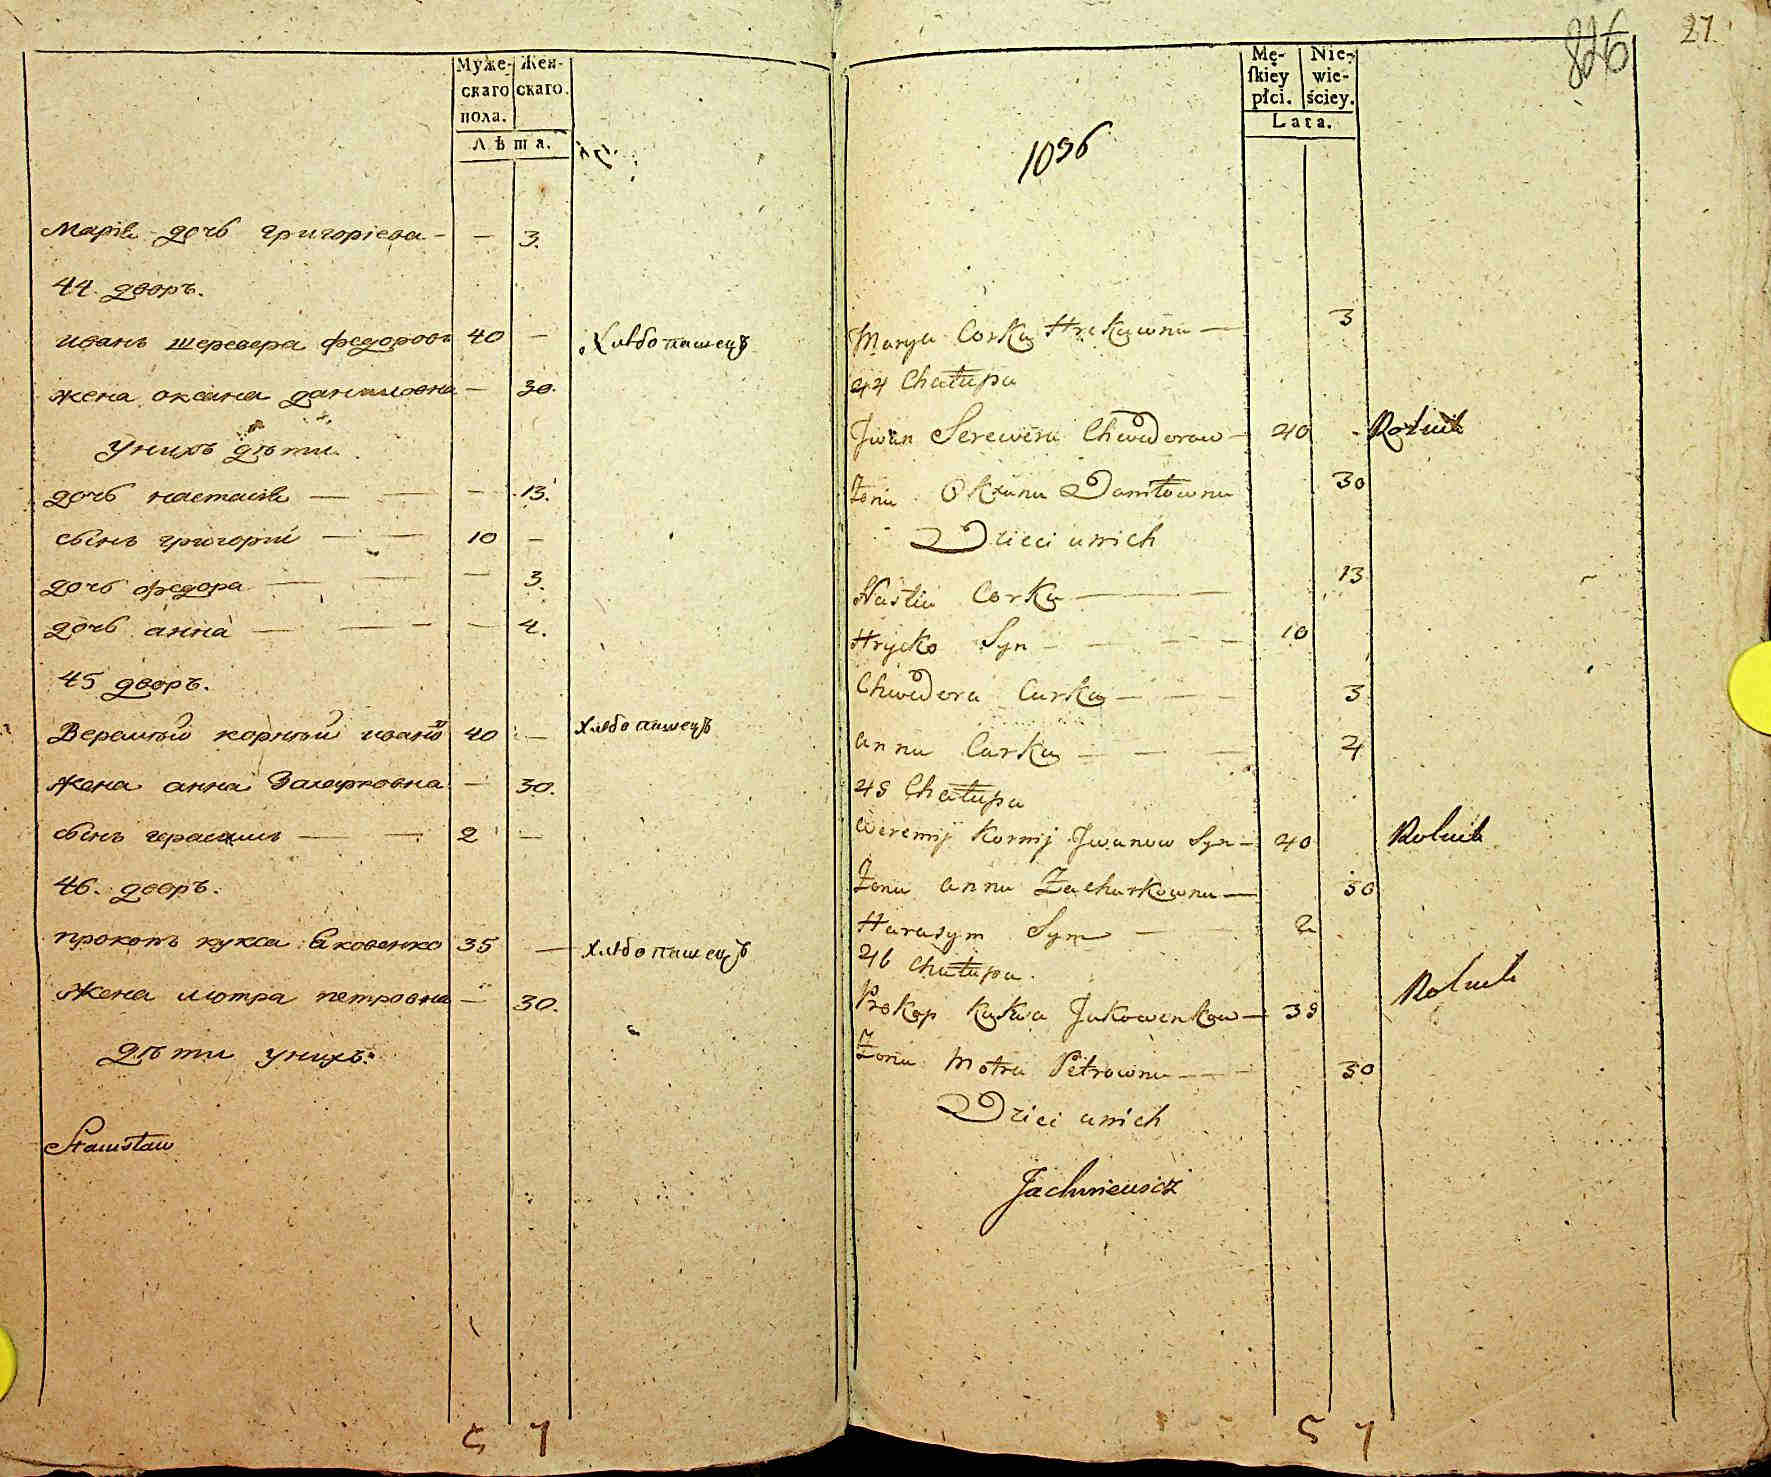 Муже-
скаго
пола.
Жен-
скаго.
Лѣта.
Марія дочь григоріева — — 3.
44 дворъ.
иванъ шеревера федоровъ 40 — Хлѣбопашецъ
жена оксана даниловна — 30.
Унихъ дѣти
дочь настасія — — — 13.
сынъ григорій — — 10 —
дочь федора — — — 3.
дочь анна — — — — 4.
45 дворъ.
Веремѣй корнѣй ивановъ 40 — Хлѣбопашецъ
жена анна Захарковна — 30.
сынъ герасимъ — — 2 —
46. дворъ.
прокопъ кукса Яковенко 35 — Хлѣбопашецъ
Жена мотра петровна — 30.
Дѣти унихъ:
Stanisław
5 7
27
826
Mę-
ſkiey
płci.
Nie-
wie-
ściey.
Lata.
1096
Marya Corka Hrekawna — 3
44 Chałupa
Jwan Serewera Chwedorow — 40 - Rolnik
Żona Oksana Daniłowna 30
Dzieci unich
Nastia Corka — — — 13
Hrycko Syn — — — — 10
Chwedora Curka — — — 3
anna Curka — — — 4
45 Chałupa
Weremij Kornij Jwanow Syn — 40 Rolnik
Żona anna Zacharkowna — 30
Harasym Syn — — 2
46 Chałupa
Prokop Kuksa Jakowenkow — 35 Rolnik
Żona Motra Petrowna — — 30
Dzieci unich
Jachniewicz
5 7